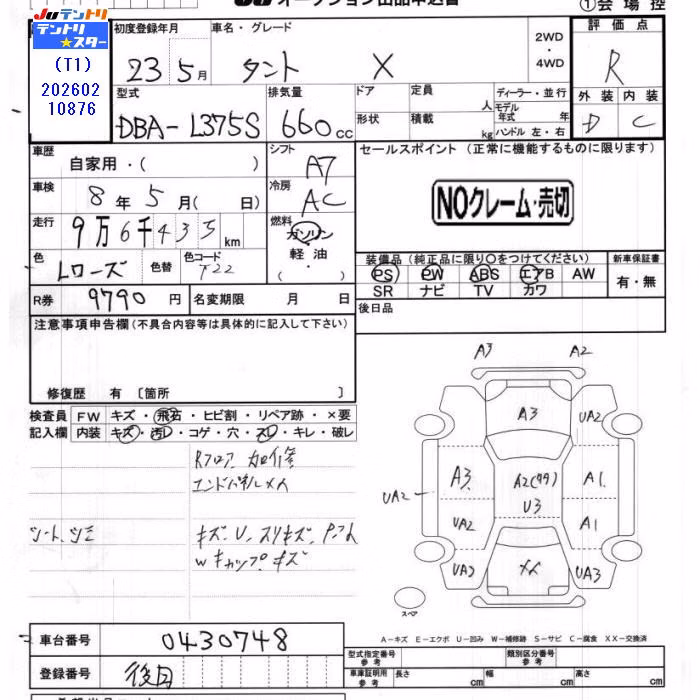 JU オークション出品申込書
①会場控
JUテントリ
テントリ★スター
(T1)
202602
10876
初度登録年月
23年 5月
車名・グレード
タント X
2WD
・
4WD
評価点
R
外装 内装
D C
型式
DBA-L375S
排気量
660cc
ドア
形状
定員 人
積載 kg
ディーラー・並行
モデル年式 年
ハンドル 左・右
車歴
自家用・( )
シフト
A7
冷房
AC
セールスポイント (正常に機能するものに限ります)
NOクレーム・売切
車検
8年 5月( 日)
走行
9万6千435km
燃料
ガソリン
・
軽油
( ・ )
色
Lローズ
色替
色コード
T22
装備品(純正品に限り〇をつけてください)
PS PW ABS エアB AW
SR ナビ TV カワ
新車保証書
有・無
R券 9790円
名変期限 月 日
後日品
注意事項申告欄(不具合内容等は具体的に記入して下さい)
修復歴 有〔箇所 〕
検査員記入欄
FW キズ・飛石・ヒビ割・リペア跡・×要
内装 キズ・汚レ・コゲ・穴・スレ・キレ・破レ
Rフロア加修
エンドパネルメ人
シート、シミ
キズ、U、スリキズ、
Wキャップキズ
A3 A2
A3
UA2
A3 A2(99) A1
U3
UA2
UA2 A1
UA2 XX UA3
スペア
A-キズ E-エクボ U-凹み W-補修跡 S-サビ C-腐食 XX-交換済
車台番号 0430748
登録番号 後日
型式指定番号 参考
類別区分番号 参考
車庫証明用 参考
長さ cm
幅 cm
高さ cm